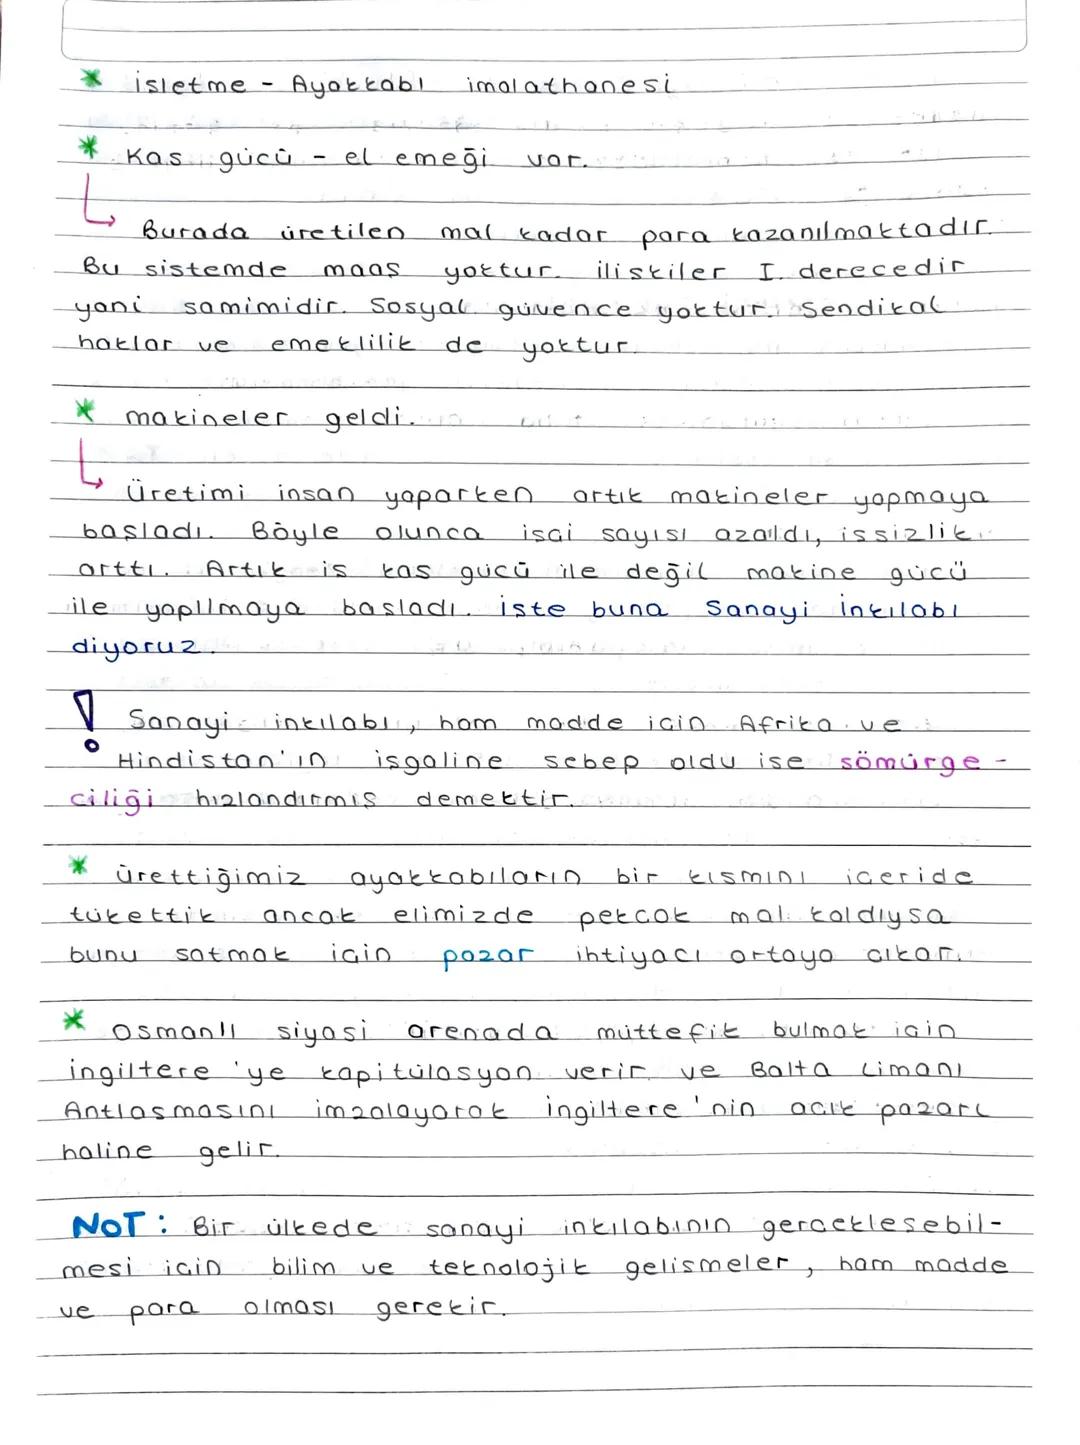 * işletme - Ayakkabı imalathanesi
* Kas gücü - el emeği var.
Burada üretilen mal kadar para kazanılmaktadır.
Bu sistemde maaş yoktur. ilişkiler I. derecedir
yani samimidir. Sosyal güvence yoktur. Sendikal
haklar ve emeklilik de yoktur.
* makineler geldi.
Üretimi insan yaparken artık makineler yapmaya
başladı. Böyle olunca işçi sayısı azaldı, işsizlik
arttı. Artık iş kas gücü ile değil makine gücü
ile yapılmaya başladı. işte buna Sanayi inkılabı
diyoruz.
! Sanayi inkılabı, ham madde için Afrika ve
Hindistan'ın işgaline sebep oldu ise sömürge-
ciliği hızlandırmış demektir.
* ürettiğimiz ayakkabıların bir kısmını içeride
tükettik ancak elimizde pekçok mal kaldıysa
bunu satmak için pazar ihtiyacı ortaya çıkar.
* Osmanlı siyasi arenada müttefik bulmak için
ingiltere'ye kapitülasyon verir ve Balta Limanı
Antlaşmasını imzalayarak ingiltere'nin açık pazarı
haline gelir.
NOT: Bir ülkede sanayi inkılabının gerçekleşebil-
mesi için bilim ve teknolojik gelişmeler, ham madde
ve para olması gerekir.